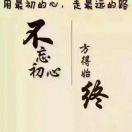 用最初的心，走最远的路
不忘
初心
方得始
终